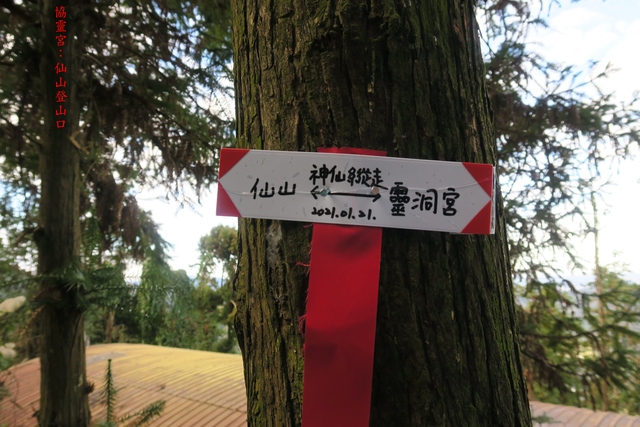 協靈宮：仙山登山口
神仙縱走
仙山 ←→ 靈洞宮
2021.01.21.